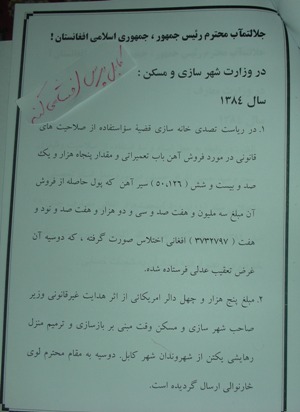 جلالتمآب محترم رئیس جمهور ، جمهوری اسلامی افغانستان !
کابل پرس افشا می کند
در وزارت شهر سازی و مسکن :
سال ۱۳۸۴
۱. در ریاست تصدی خانه سازی قضیهٔ سؤاستفاده از صلاحیت های
قانونی در مورد فروش آهن باب تعمیراتی و مقدار پنجاه هزار و یک
صد و بیست و شش ( ۵۰،۱۲۶ ) سیر آهن که پول حاصله از فروش
آن مبلغ سه ملیون و هفت صد و سی و دو هزار و هفت صد و نود و
هفت ( ۳۷۳۲۷۹۷ ) افغانی اختلاس صورت گرفته ، که دوسیه آن
غرض تعقیب عدلی فرستاده شده.
۲. مبلغ پنج هزار و چهل دالر امریکائی از اثر هدایت غیرقانونی وزیر
صاحب شهر سازی و مسکن وقت مبنی بر بازسازی و ترمیم منزل
رهایشی یکتن از شهروندان شهر کابل. دوسیه به مقام محترم لوی
خارنوالی ارسال گردیده است.